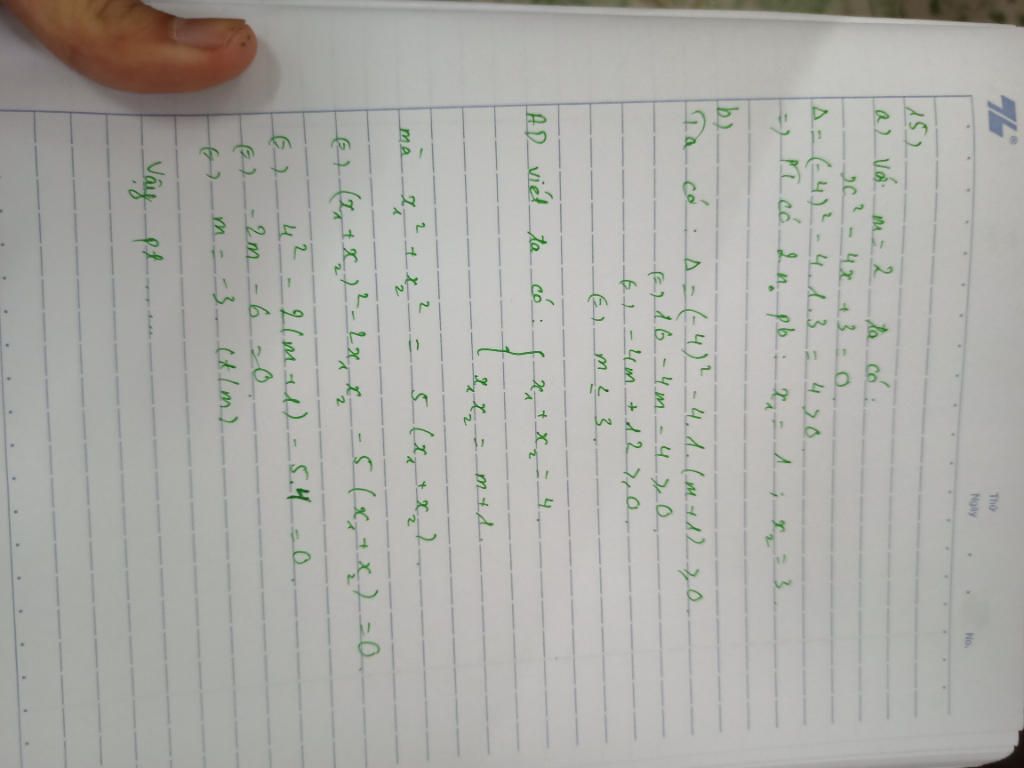 Thứ
Ngày
No.
15)
a) Với m = 2 ta có:
x² - 4x + 3 = 0
Δ = (-4)² - 4.1.3 = 4 > 0
=) PT có 2 n₀ pb : x₁ = 1 ; x₂ = 3
b)
Ta có : Δ = (-4)² - 4.1.(m+1) ⩾ 0
(=) 16 - 4m - 4 ⩾ 0
(=) - 4m + 12 ⩾ 0
(=) m ≤ 3
AD viét ta có : { x₁ + x₂ = 4
x₁x₂ = m+1
mà x₁² + x₂² = 5 (x₁ + x₂)
(=) (x₁ + x₂)² - 2x₁x₂ - 5 (x₁ + x₂) = 0
(=) 4² - 2(m+1) - 5.4 = 0
(=) -2m - 6 = 0
(=) m = -3 (t/m)
Vậy pt .......